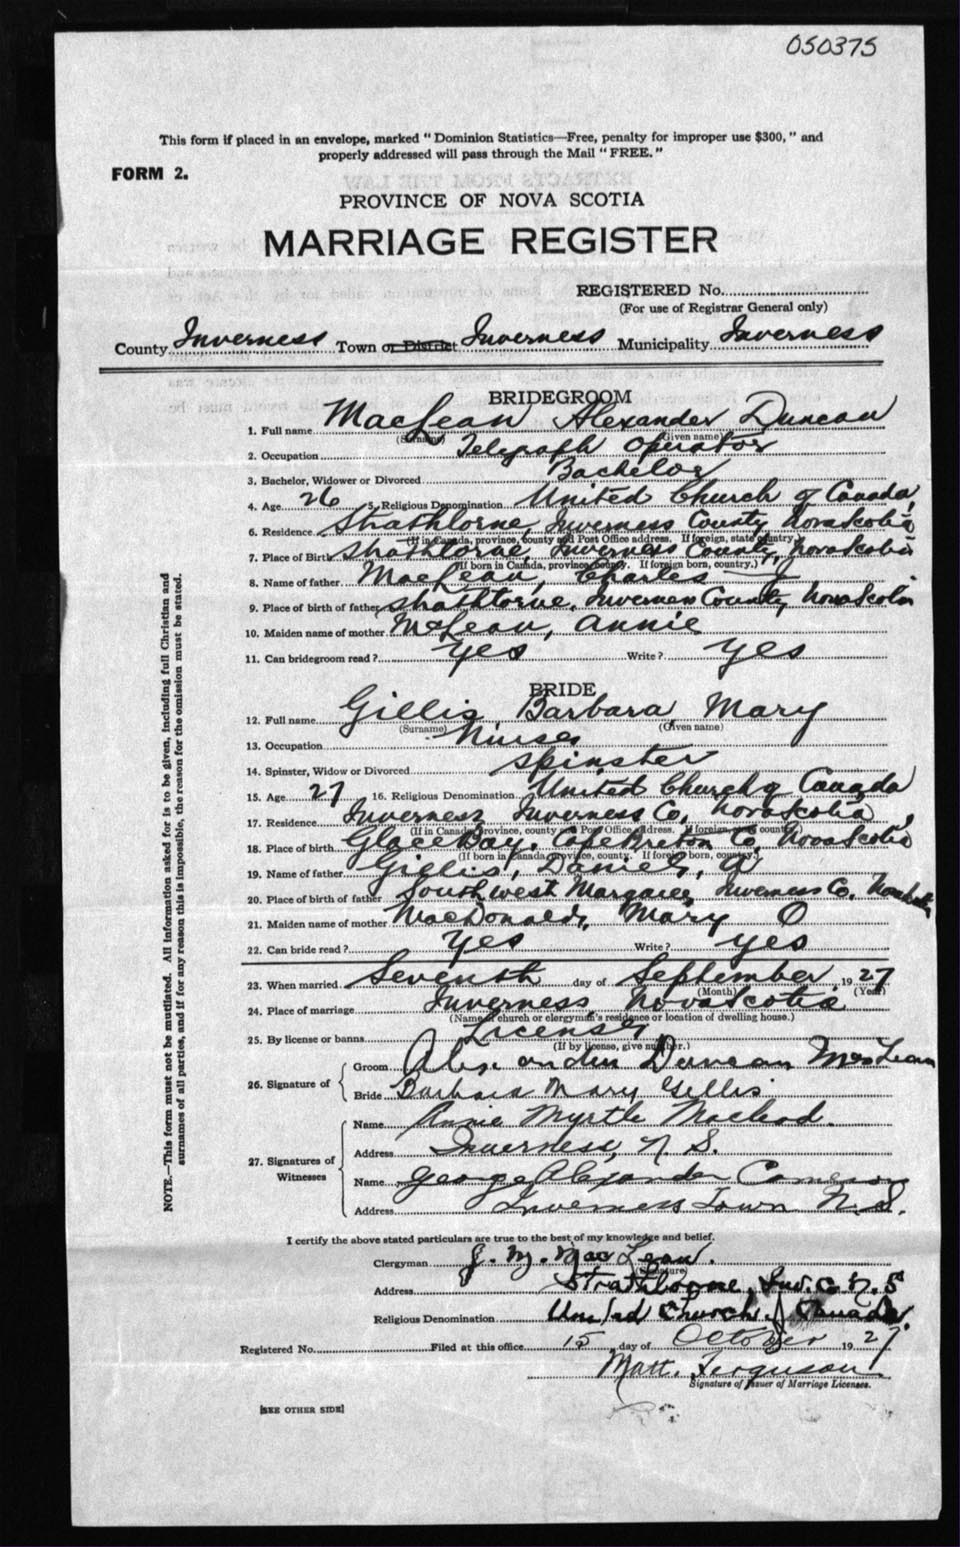 050375
This form if placed in an envelope, marked "Dominion Statistics—Free, penalty for improper use $300," and
properly addressed will pass through the Mail "FREE."
FORM 2.
PROVINCE OF NOVA SCOTIA
MARRIAGE REGISTER
REGISTERED No.
(For use of Registrar General only)
County Inverness Town or District Inverness Municipality Inverness
BRIDEGROOM
1. Full name MacLean Alexander Duncan
(Surname) (Given name)
2. Occupation Telegraph Operator
3. Bachelor, Widower or Divorced Bachelor
4. Age 26 5. Religious Denomination United Church of Canada
6. Residence Strathlorne, Inverness County Nova Scotia
(If in Canada, province, county and Post Office address. If foreign, state country.)
7. Place of Birth Strathlorne, Inverness County, Nova Scotia
(If born in Canada, province, county. If foreign born, country.)
8. Name of father MacLean, Charles J
9. Place of birth of father Strathlorne, Inverness County Nova Scotia
10. Maiden name of mother McLean, Annie
11. Can bridegroom read? yes Write? yes
BRIDE
12. Full name Gillis, Barbara, Mary
(Surname) (Given name)
13. Occupation Nurse
14. Spinster, Widow or Divorced Spinster
15. Age 27 16. Religious Denomination United Church of Canada
17. Residence Inverness Inverness Co, Nova Scotia,
(If in Canada, province, county and Post Office address. If foreign, state country.)
18. Place of birth Glace Bay, Cape Breton Co, Nova Scotia
(If born in Canada, province, county. If foreign born, country.)
19. Name of father Gillis, Daniel, A
20. Place of birth of father South west Margaree, Inverness Co. Nova Scotia
21. Maiden name of mother MacDonald, Mary O
22. Can bride read? yes Write? yes
23. When married Seventh day of September, 1927
(Month) (Year)
24. Place of marriage Inverness, Nova Scotia
(Name of church or clergyman's residence or location of dwelling house.)
25. By license or banns License
(If by license, give number.)
26. Signature of Groom Alexander Duncan MacLean
Bride Barbara Mary Gillis
27. Signatures of Witnesses Name Annie Myrtle Macleod.
Address Inverness, N. S.
Name George Alexander Cameron
Address Inverness Town N.S.
I certify the above stated particulars are true to the best of my knowledge and belief.
Clergyman J. M. MacLean.
(Signature)
Address Strathlorne, Inv. C. N. S
Religious Denomination United Church of Canada.
Registered No. Filed at this office 15 day of October 1927
Matt. Ferguson
Signature of Issuer of Marriage Licenses.
[SEE OTHER SIDE]
NOTE.—This form must not be mutilated. All information asked for is to be given, including full Christian and
surnames of all parties, and if for any reason this is impossible, the reason for the omission must be stated.